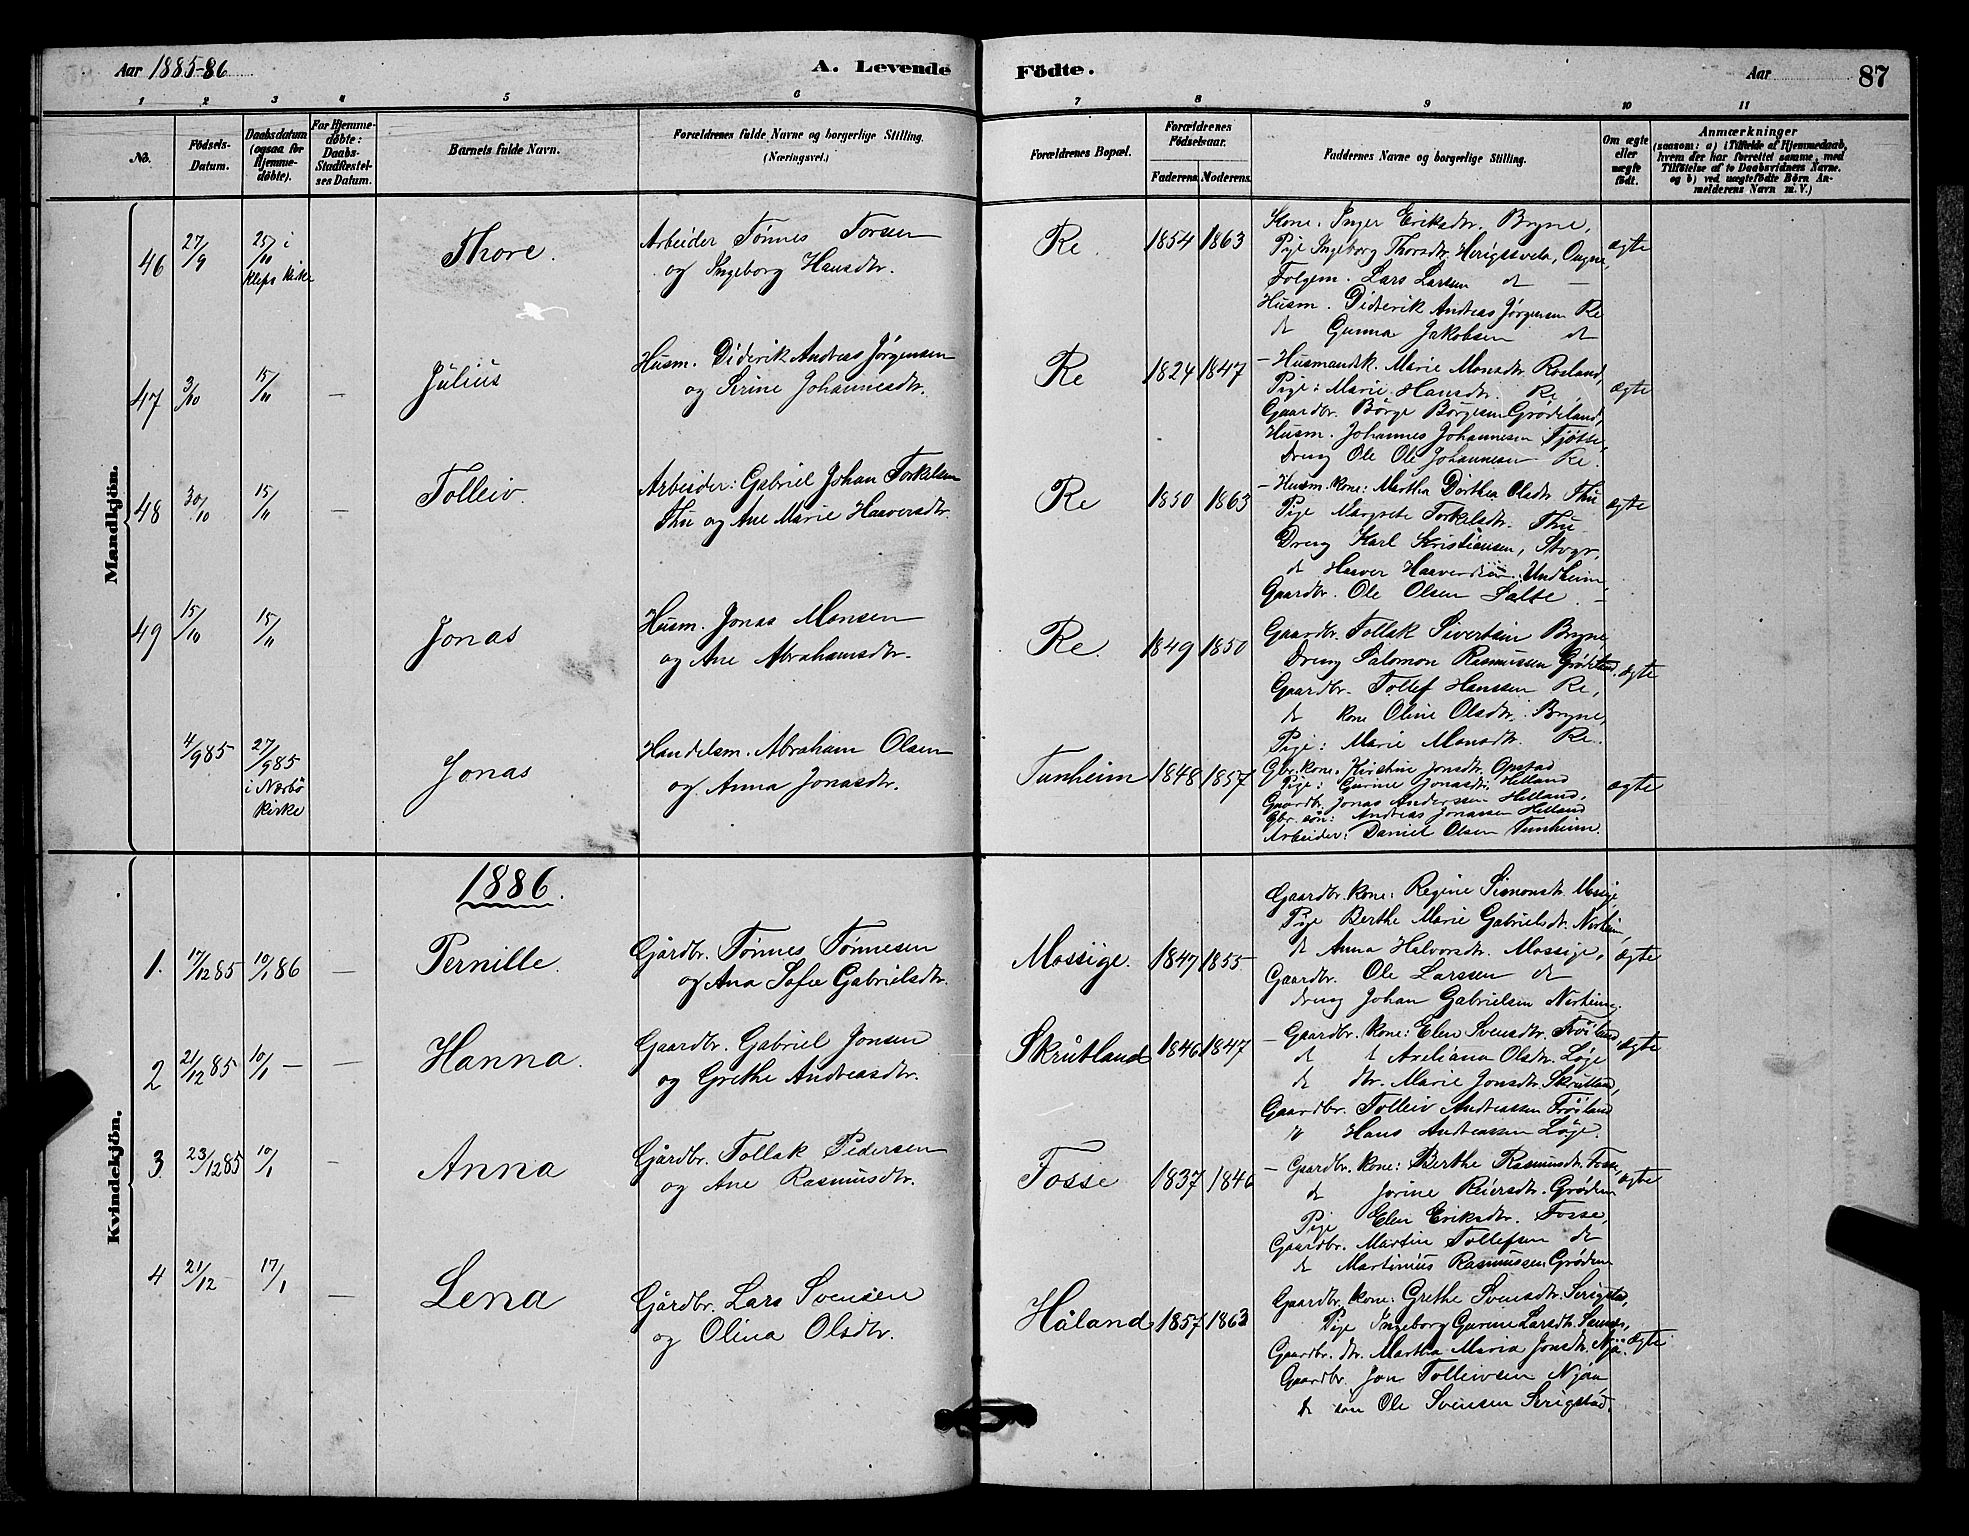 Aar 1885-86
A. Levende Födte.
Aar
87
1 2 3 4 5 6 7 8 9 10 11
No.
Födsels-Datum.
Daabsdatum (ogsaa for Hjemmedöbte).
For Hjemmedöbte: Daabs-Stadfæstelses Datum.
Barnets fulde Navn.
Forældrenes fulde Navne og borgerlige Stilling. (Næringsvei.)
Forældrenes Bopæl.
Forældrenes Födselsaar.
Faderens. Moderens.
Faddernes Navne og borgerlige Stilling.
Om ægte eller uægte födt.
Anmærkninger
(saasom: a) i Tilfælde af Hjemmedaab, hvem der har forrettet samme, med Tilföielse af to Daabsvidners Navne. og b) ved uægtefödte Börn Anmelderens Navn m. V.)
Mandkjön.
46 27/9 25/10 i Kleps kirke
Thore.
Arbeider Tönnes Torsen
og Ingeborg Hansdtr.
Re. 1854 1863
Kone. Inger Eriksdtr. Bryne,
Pige Ingeborg Thorsdtr.
Folgem. Lars Larsen do —
Husm. Diderik Andreas Jörgensen Re
do Gunna Jakobsen do
ægte
47 3/10 15/11 —
Julius
Husm. Diderik Andreas Jörgensen
og Serine Johannesdtr.
Re 1824 1847
— Husmandsk. Marie Monsdtr. Rosland,
Pige: Marie Hansdtr. Re,
Gaardbr. Börge Börgesen Grödeland,
Husm. Johannes Johannesen Tjötte,
Dreng Ole Ole Johannesen Re.
ægte
48 30/10 15/11 —
Tolleiv.
Arbeider: Gabriel Johan Torkelsen
Thu og Ane Marie Haaversdtr.
Re 1850 1863
— Husm. kone: Martha Dorthea Olsdtr. Thu
Pige Margrete Torkelsdtr. Thu
Dreng Karl Kristiansen,
do Haaver Undheim
Gaardbr. Ole Olsen Salte. —
ægte
49 15/10 15/11
Jonas
Husm. Jonas Monsen
og Ane Abrahamsdtr.
Re. 1849 1850
Gaardbr. Tollak Sivertsen Bryne,
Dreng Salomon Rasmussen Grödeland.
Gaardbr. Tollef Hanssen Re,
do kone Oline Olsdtr. Bryne,
Pige: Marie Monsdtr. Re.
ægte
4/9 85 27/9 85 i Nærbö kirke
Jonas
Handelsm. Abraham Olsen
og Anna Jonasdtr.
Tunheim 1848 1857
Gbr. kone. Kirstine Jonsdtr. Opstad
Pige: Gurine Jonasdtr. Helland
Gaardbr. Jonas Anderssen Helland,
Gbr. sön: Andreas Jonassen Helland
Arbeider: Daniel Olsen Tunheim.
ægte
Kvindekjön.
1886.
1. 17/12 85 10/1 86 —
Pernille.
Gårdbr. Tönnes Tönnesen
og Ana Sofie Gabrielsdtr.
Mossige. 1847 1855
Gaardbr. kone: Regine Simonsdtr. Mosige
Pige Berthe Marie Gabrielsdtr.
do Anna Halvorsdtr. Mossige,
Gaardbr. Ole Larssen do
dreng Johan Gabrielsen
ægte
2 21/12 85 10/1 — —
Hanna.
Gaardbr. Gabriel Jonsen
og Grethe Andreasdtr.
Skrutland 1846 1847
— Gaardbr. kone: Elen Svensdtr. Fröiland
do do Areliana Olsdtr. Löge
do dtr. Marie Jonsdtr. Skrutland,
Gaardbr. Tolleiv Andreassen Fröiland
do Hans Andreassen Löge.
ægte
3. 23/12 85 10/1 —
Anna
Gårdbr. Tollak Pedersen
og Ane Rasmusdtr.
Fosse 1837 1846
— Gaardbr. kone: Berthe Rasmusdtr. Fosse,
do Jorine Reiersdtr. Grödem
Pige Elen Eriksdtr. Fosse,
Gaardbr. Martin Tollefsen do
do Martinius Rasmussen Grödem
ægte
4 21/12 17/1 —
Lena
Gårdbr. Lars Svensen
og Olina Olsdtr.
Håland 1857 1863
Gaardbr. kone: Grethe Svensdtr. Serigstad,
Pige Ingeborg Gurine Larsdtr.
Gaardbr. dtr. Martha Maria Jonsdtr. Njå.
Gaardbr. Jon Tolleivsen Njaa
do sön Ole Svensen Serigstad.
ægte